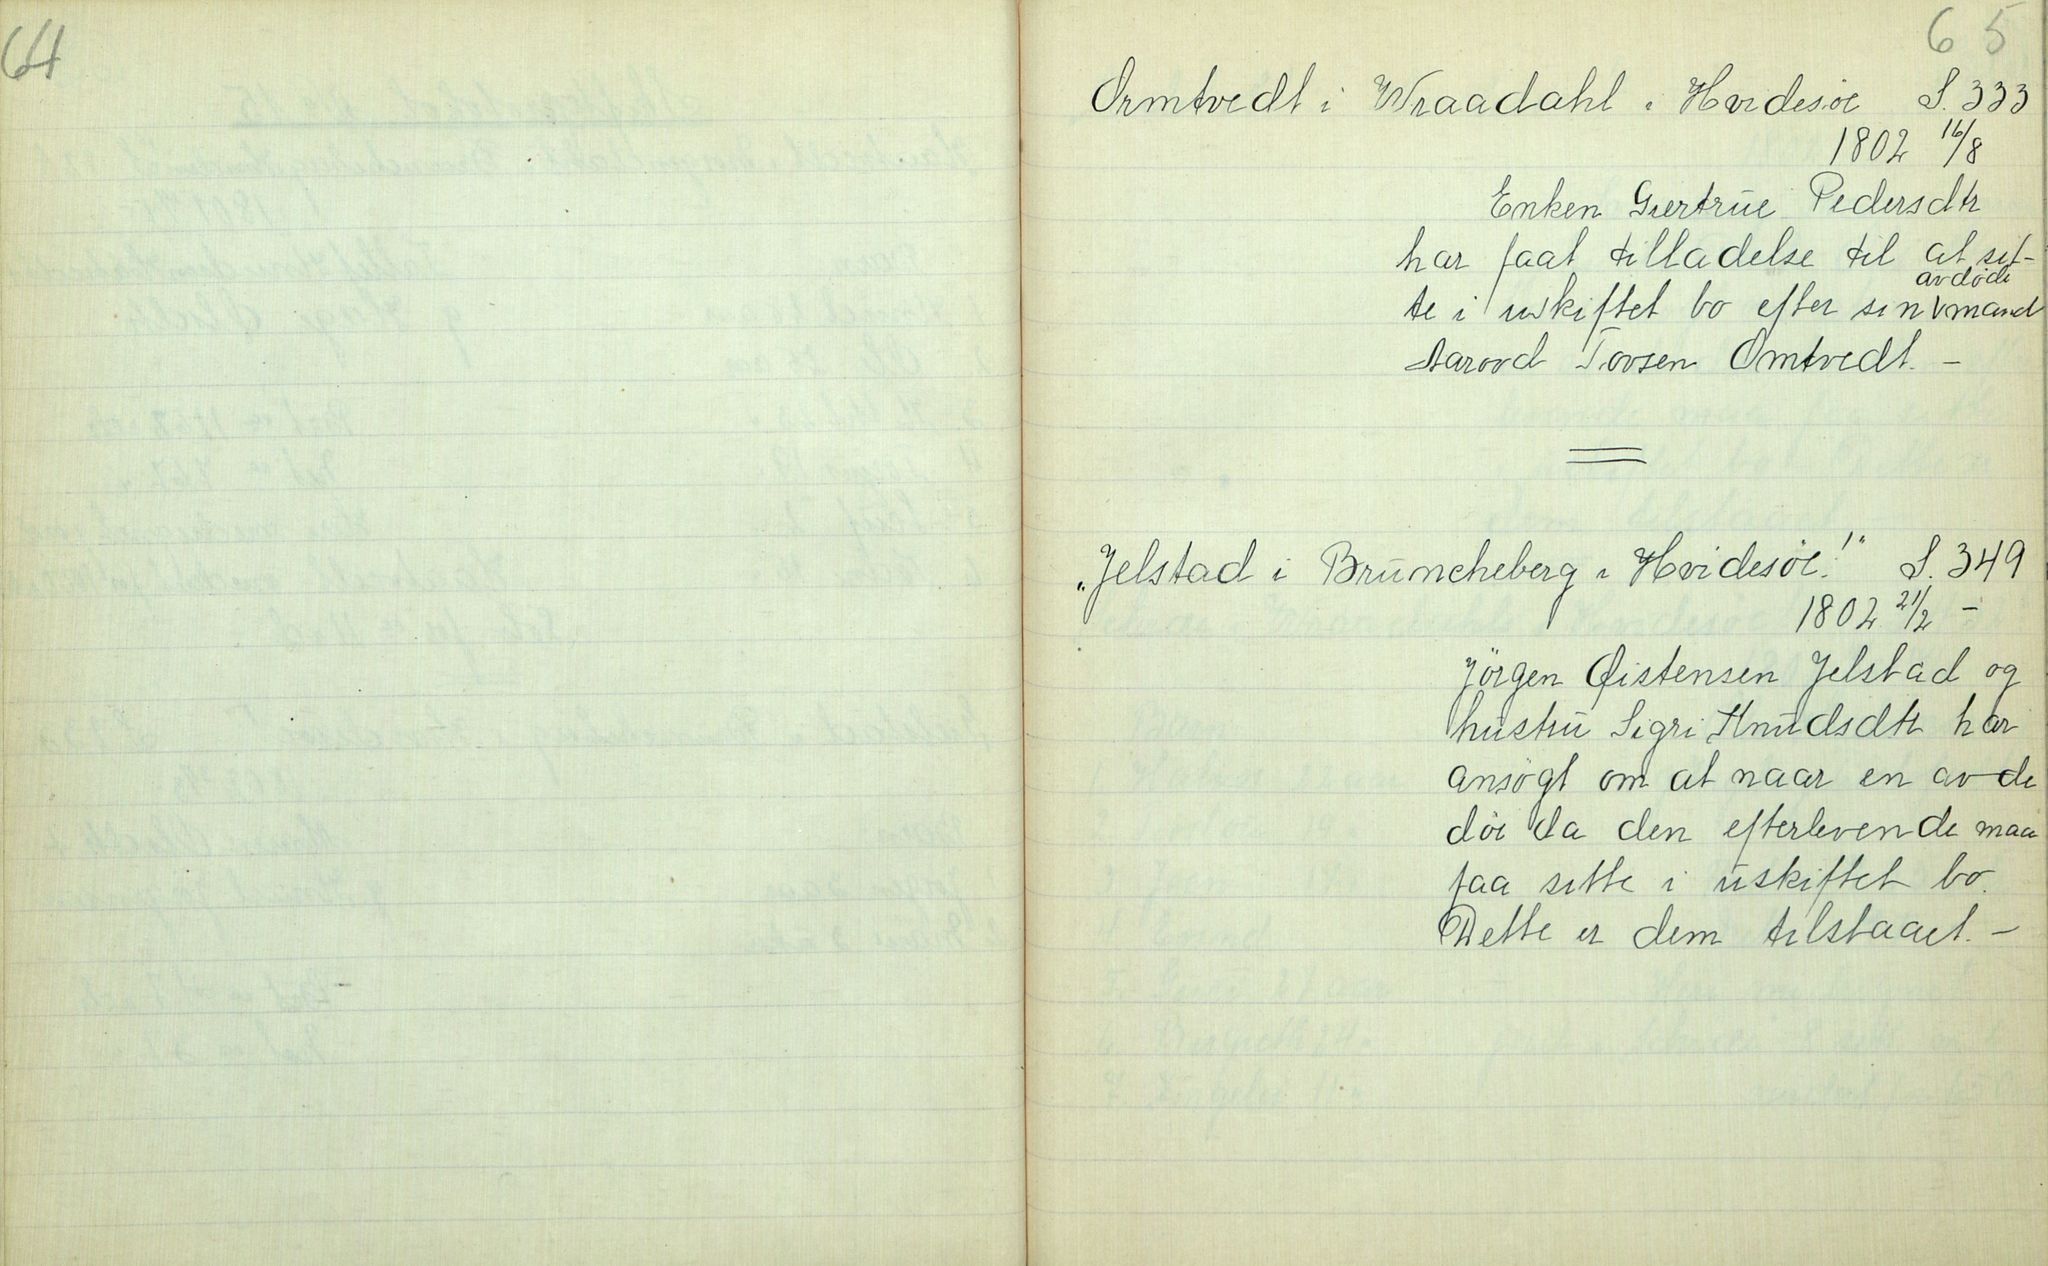 64
65
Ormtvedt i Wraadahl i Hvidesöe S. 333
1802 16/8
Enken Giertrue Pedersdtr
har faat tilladelse til at sit-
te i uskiftet bo efter sin avdöde mand
Tarovd Tovsen Omtvedt. -
"Jelstad i Brüncheberg i Hvidesöe!" S. 349
1802 21/2 -
Jörgen Øistensen Jelstad og
hustrü Sigri Knüdsdtr har
ansögt om at naar en av de
döe da den efterlevende maa
faa sitte i üskiftet bo.
Dette er dem tilstaaet. -